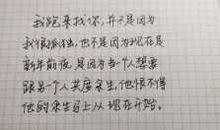 我跑来找你，并不是因为
我很孤独，也不是因为现在是
新年前夜，是因为当一个人想要
跟另一个人共度余生，他恨不得
他的余生马上从现在开始。